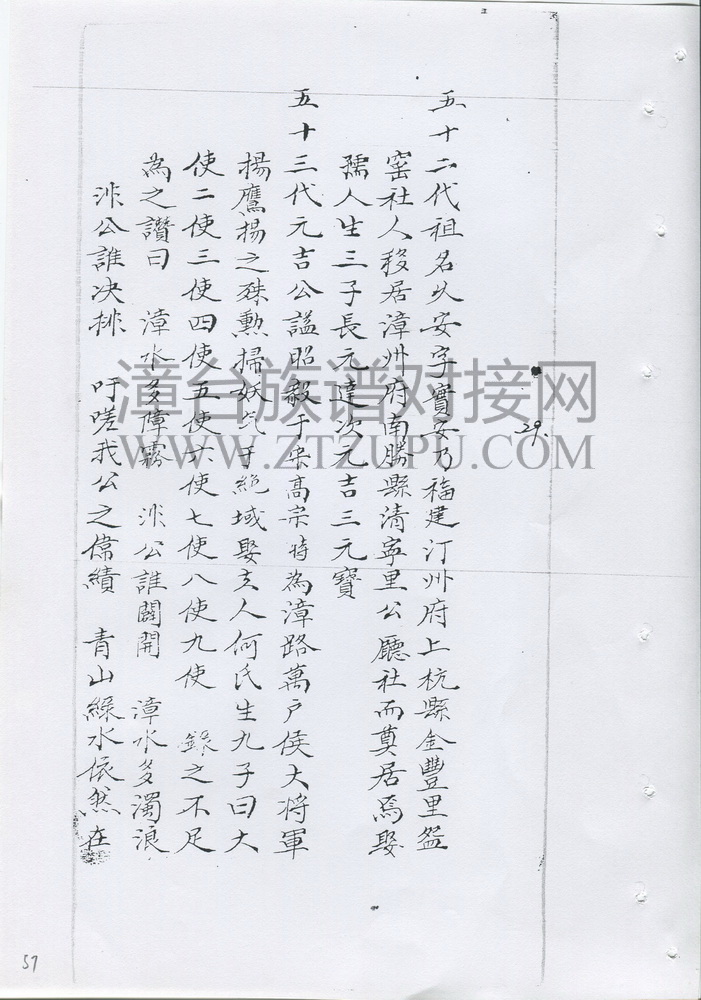 29.
五十二代祖名火安字實安乃福建汀州府上杭縣金豐里
窑社人移居漳州府南勝縣清寧里公廳社而奠居焉娶
孺人生三子長元達次元吉三元寶
五十三代元吉公謚昭毅于宋高宗時為漳路萬戶侯大將軍
揚鷹揚之殊勲掃妖氛于絕域娶夫人何氏生九子曰大
使二使三使四使五使六使七使八使九使 錄之不足
為之讚曰 漳水多障霧 洪公誰闢開 漳水多濁浪
洪公誰决排 吁嗟我公之偉績 青山綠水依然在
漳台族谱对接网
WWW.ZTZUPU.COM
57